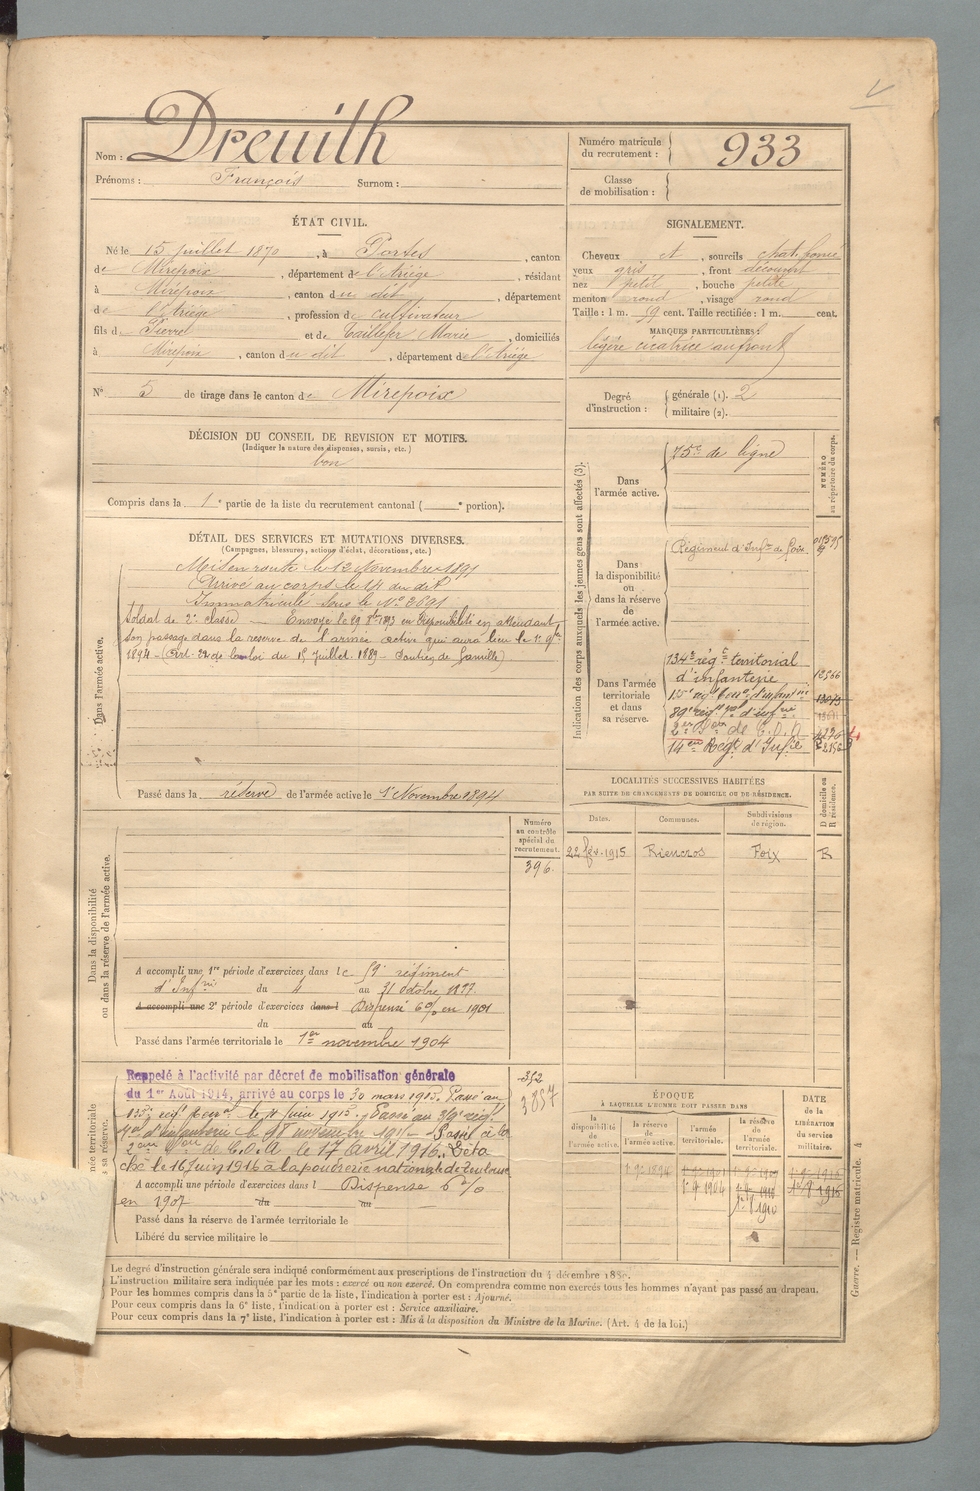 Nom : Dreuilh
Prénoms : François Surnom :
Numéro matricule du recrutement : 933
Classe de mobilisation :
ÉTAT CIVIL.
Né le 15 Juillet 1870, à Portes, canton
de Mirepoix, département de l'Ariège, résidant
à Mirepoix, canton du dit, département
de l'Ariège, profession de cultivateur
fils de Pierre et de Taillefer Marie, domiciliés
à Mirepoix, canton du dit, département de l'Ariège
N° 5 de tirage dans le canton de Mirepoix
SIGNALEMENT.
Cheveux et, sourcils chat. foncé
yeux gris, front découvert
nez petit, bouche petite
menton rond, visage rond
Taille : 1 m. 59 cent. Taille rectifiée : 1 m. cent.
MARQUES PARTICULIÈRES :
légère cicatrice au front
Degré d'instruction : générale (1). 2
militaire (2).
DÉCISION DU CONSEIL DE REVISION ET MOTIFS.
(Indiquer la nature des dispenses, sursis, etc.)
bon
Compris dans la 1e partie de la liste du recrutement cantonal ( e portion).
DÉTAIL DES SERVICES ET MUTATIONS DIVERSES.
(Campagnes, blessures, actions d'éclat, décorations, etc.)
Dans l'armée active.
Mis en route le 12 Novembre 1891
Arrivé au corps le 14 du dit
Immatriculé sous le N° 2691
Soldat de 2e classe — Envoyé le 29 8bre 1893 en disponibilité en attendant
son passage dans la réserve de l'armée active qui aura lieu le 1er 9bre
1894 - (Art. 22 de la loi du 15 Juillet 1889 - Soutien de famille)
Passé dans la réserve de l'armée active le 1er Novembre 1894
Indication des corps auxquels les jeunes gens sont affectés (3).
NUMÉRO au répertoire du corps.
Dans l'armée active.
75e de ligne
Dans la disponibilité ou dans la réserve de l'armée active.
Régiment d'Infrie de Foix
Dans l'armée territoriale et dans sa réserve.
134e régt territorial
d'infanterie 12566
89e régt d'infrie
2e Son de C.O.A
14eme Régt d'Infie
LOCALITÉS SUCCESSIVES HABITÉES
PAR SUITE DE CHANGEMENTS DE DOMICILE OU DE RÉSIDENCE.
Dates. Communes. Subdivisions de région. D domicile ou R résidence.
22 fév. 1915 Rieucros Foix R
Dans la disponibilité ou dans la réserve de l'armée active.
Numéro au contrôle spécial du recrutement.
396
A accompli une 1re période d'exercices dans le 59e régiment
d'Infrie du 4 au 31 octobre 1897
A accompli une 2e période d'exercices dans l Dispensé 6% en 1901
du au
Passé dans l'armée territoriale le 1er novembre 1904
Rappelé à l'activité par décret de mobilisation générale
du 1er Août 1914, arrivé au corps le 30 mars 1915. Passé au
2eme Son de C.O.A le 17 avril 1916. Déta
ché le 16 Juin 1916 à la poudrerie nationale de Toulouse
A accompli une période d'exercices dans l Dispensé 6%
en 1907 du au
Passé dans la réserve de l'armée territoriale le
Libéré du service militaire le
352
3857
ÉPOQUE
À LAQUELLE L'HOMME DOIT PASSER DANS
la disponibilité de l'armée active. la réserve de l'armée active. l'armée territoriale. la réserve de l'armée territoriale.
DATE de la LIBÉRATION du service militaire.
1er 9bre 1894
1er 9bre 1904
Le degré d'instruction générale sera indiqué conformément aux prescriptions de l'instruction du 4 décembre 1889.
L'instruction militaire sera indiquée par les mots : exercé ou non exercé. On comprendra comme non exercés tous les hommes n'ayant pas passé au drapeau.
Pour les hommes compris dans la 5e partie de la liste, l'indication à porter est : Ajourné.
Pour ceux compris dans la 6e liste, l'indication à porter est : Service auxiliaire.
Pour ceux compris dans la 7e liste, l'indication à porter est : Mis à la disposition du Ministre de la Marine. (Art. 4 de la loi.)
Guerre. — Registre matricule. 4